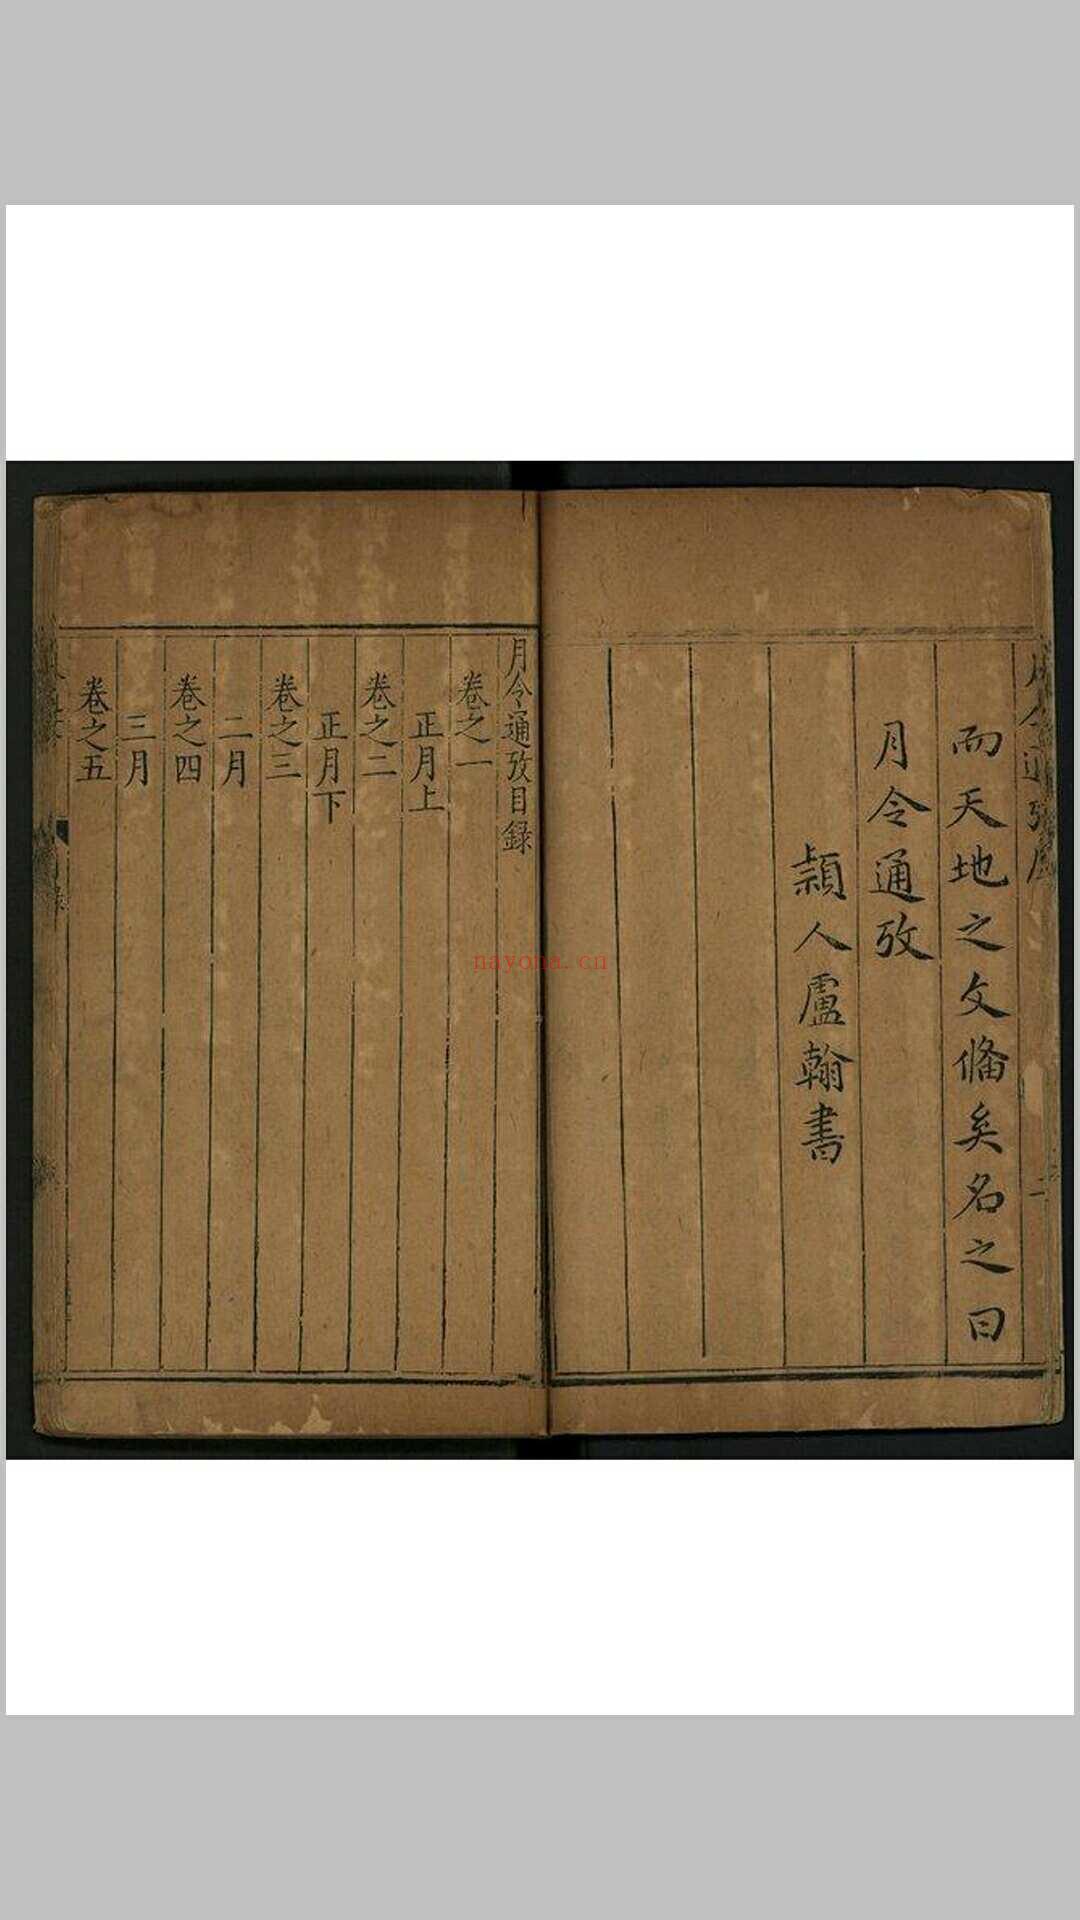 月令通攷序
二
而天地之文俻矣名之曰
月令通攷
潁人盧翰書
月令通攷目録
卷之一
正月上
卷之二
正月下
卷之三
二月
卷之四
三月
卷之五
nayona.cn